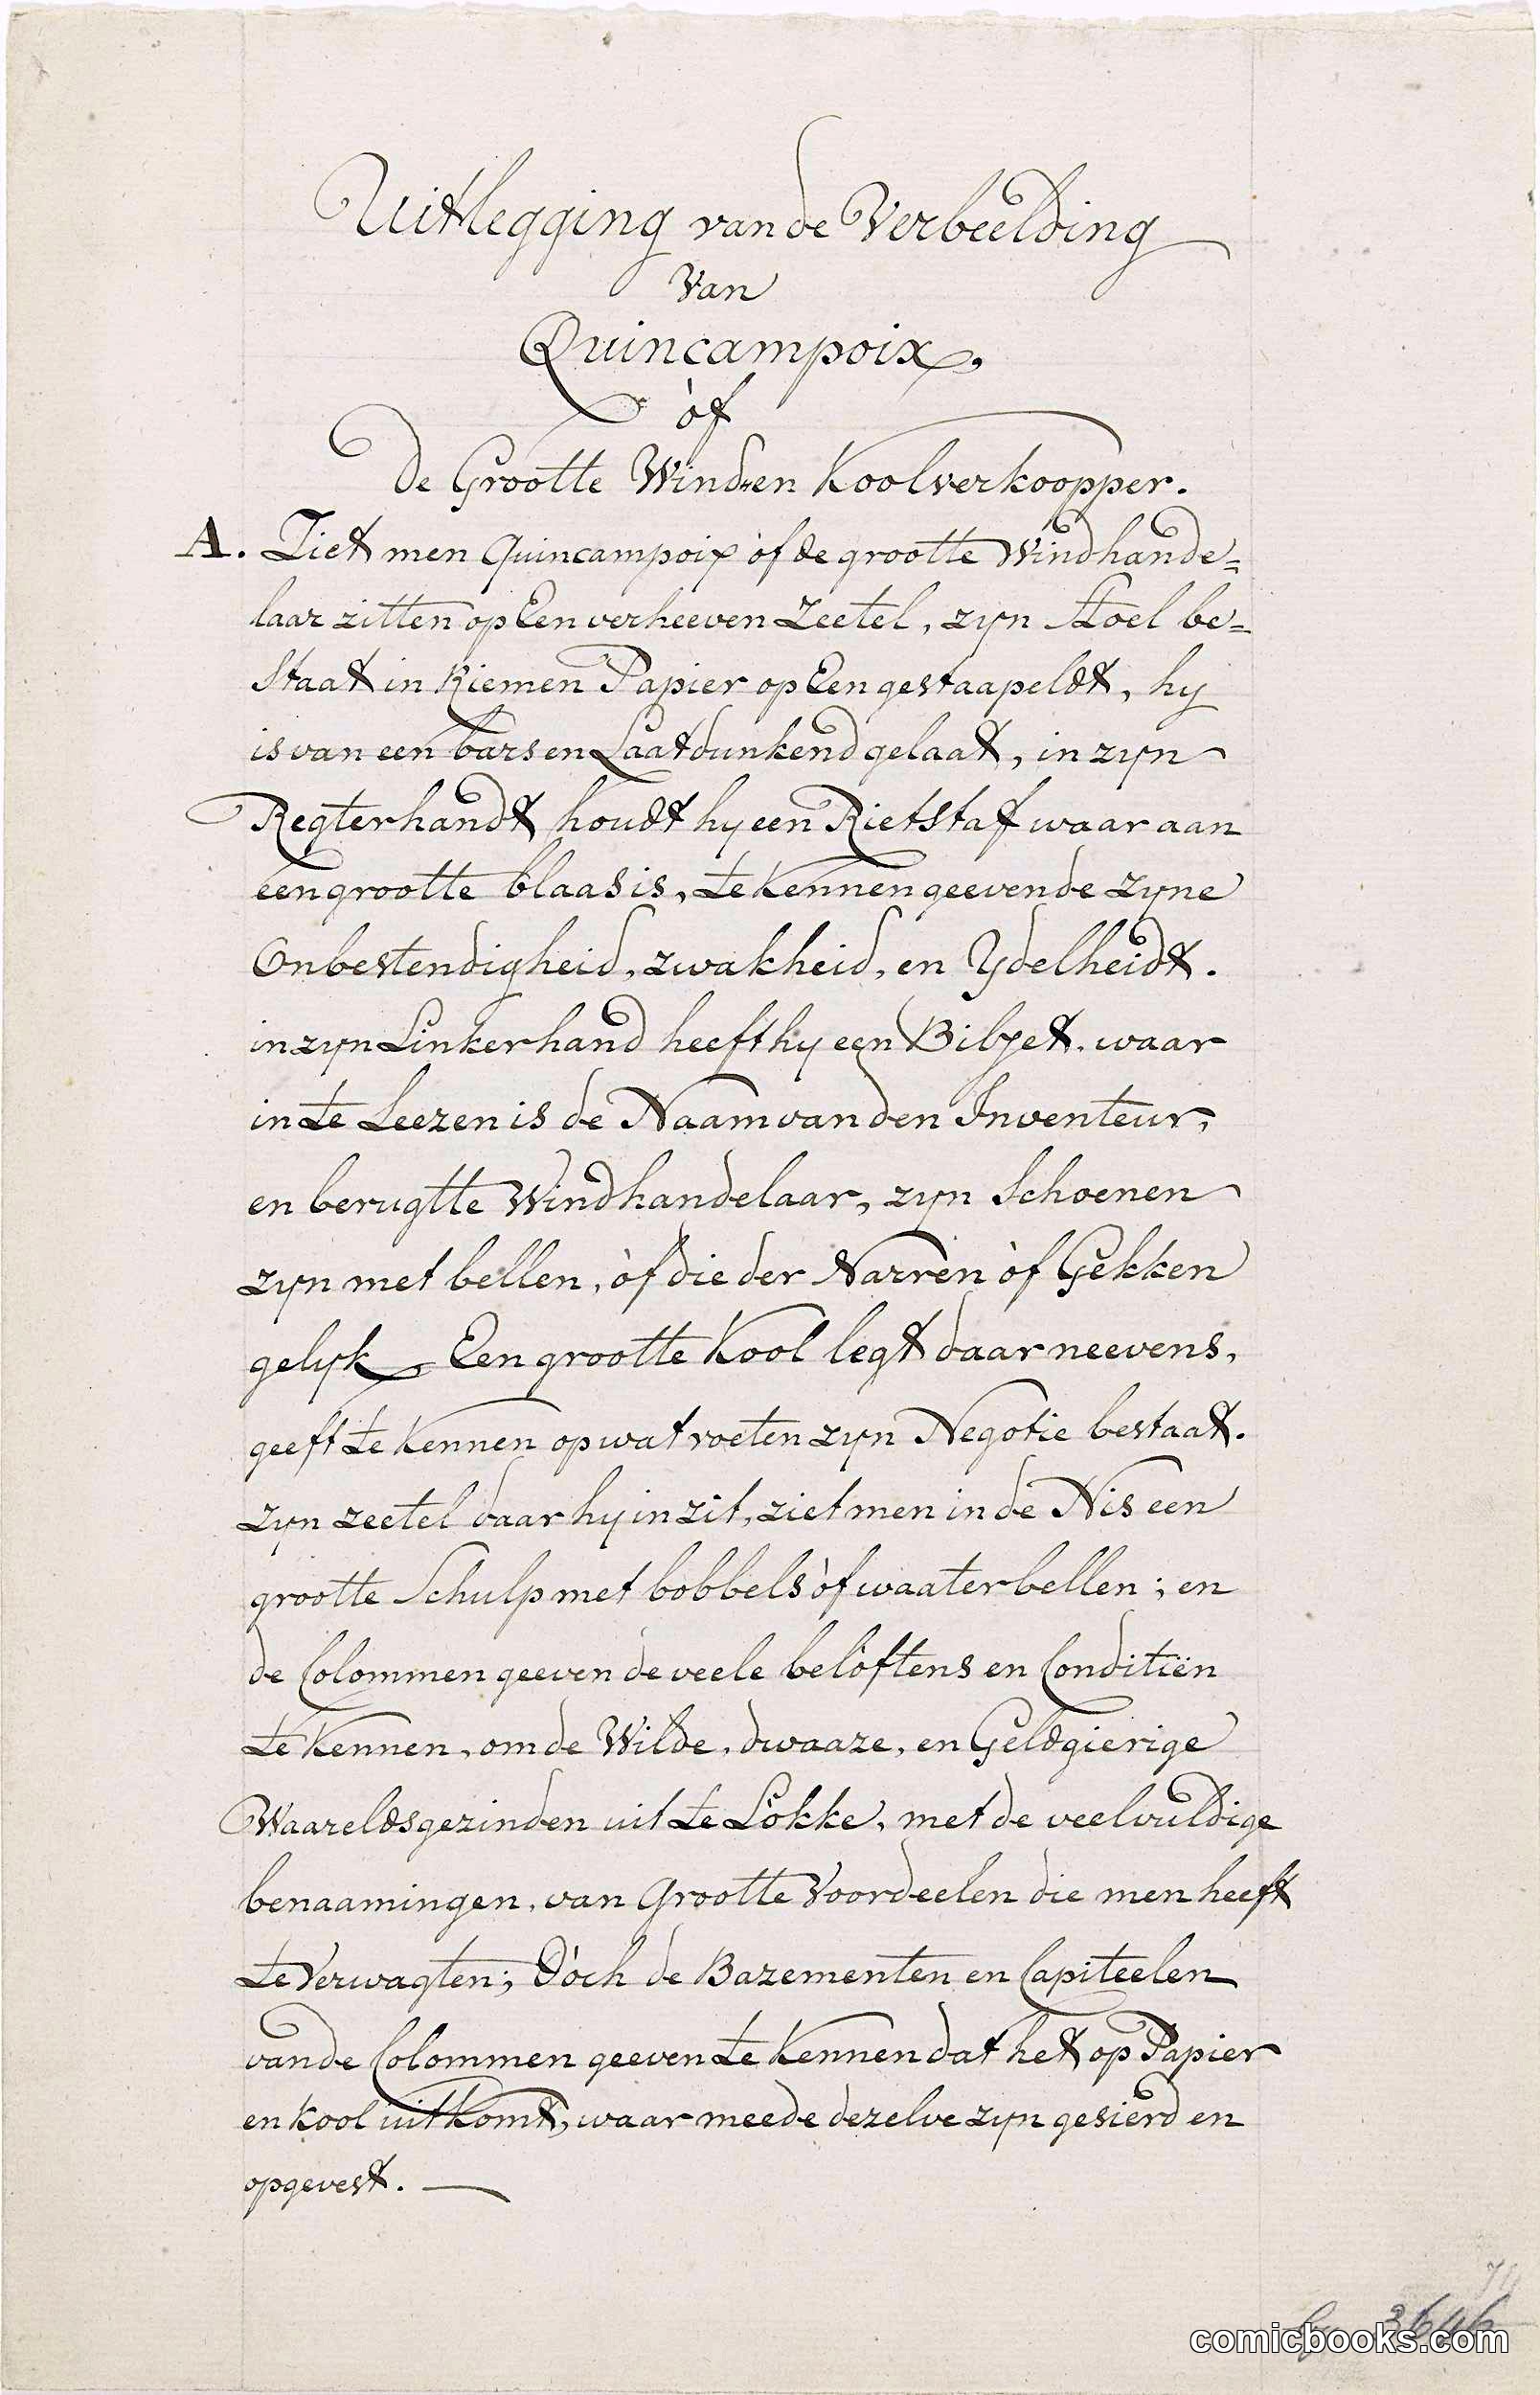 Uitlegging van de Verbeelding
Van
Quincampoix,
òf
de Grootte Wind en Koolverkoopper.
A. Ziet men Quincampoix òf de grootte Windhande=
laar zitten op Een verheeven Zeetel, zyn Stoel be=
staat in Riemen Papier op Een gestaapeldt, hy
is van een bars en Laatdunkend gelaat, in zyn
Regterhandt houdt hy een Rietstaf waar aan
een grootte blaas is, te Kennen geevende zyne
Onbestendigheid, zwakheid, en Ydelheidt.
in zyn Linkerhand heeft hy een Biljet. waar
in te Leezen is de Naam van den Inventeur,
en berugtte Windhandelaar, zyn Schoenen
zyn met bellen, òf die der Narren òf Gekken
gelyk Een grootte Kool legt daar neevens,
geeft te Kennen op wat voeten zyn Negotie bestaat.
zyn zeetel daar hy in zit, ziet men in de Nis een
grootte Schulp met bobbels òf waaterbellen; en
de Colommen geeven de veele belòftens en Conditiën
te Kennen, om de Wilde, dwaaze, en Geldgierige
Waareldsgezinden uit te Lòkke, met de veelvuldige
benaamingen, van Grootte Voordeelen die men heeft
te Verwagten; Dòch de Bazementen en Capiteelen
van de Colommen geeven te Kennen dat het op Papier
en Kool uitkomt, waar meede dezelve zyn gesierd en
opgevest. —
3646
comicbooks.com